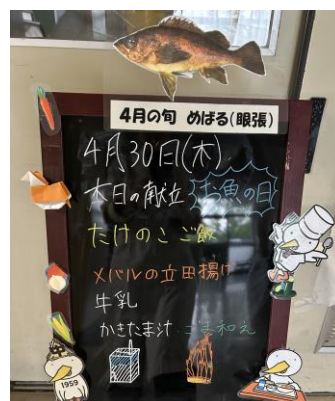 4月の旬 めばる(眼張)
4月30日(木)
本日の献立 お魚の日
たけのこご飯
メバルの立田揚げ
牛乳
かきたま汁 ごま和え
1959